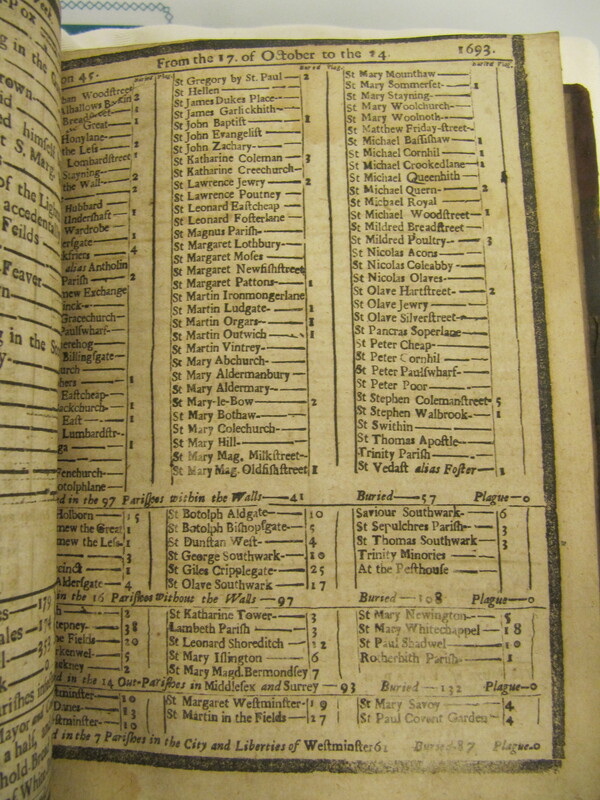 From the 17. of October to the 24. 1693.
on 45.
Buried Plag.
ban Woodstreet
Alhallows Barkin 2
Breadstreet 1
Great 1
Honylane
the Less 2
Lombardstreet 1
Stayning
the Wall 2
Hubbard
Undershaft 1
Wardrobe
ersgate 1
kfriers 4
alias Antholin
Parish 2
new Exchange
inck
Gracechurch
Paulswharf
herehog
Billingsgate
urch
hers 1
Eastcheap
ackchurch 1
East 1
Lumbardstr
ga 1
Fenchurch
otolphlane
Buried Plag.
St Gregory by St. Paul 2
St Hellen
St James Dukes Place
St James Garlickhith
St John Baptist 1
St John Evangelist
St John Zachary
St Katharine Coleman 3
St Katharine Creechurch
St Lawrence Jewry 2
St Lawrence Poutney
St Leonard Eastcheap
St Leonard Fosterlane
St Magnus Parish
St Margaret Lothbury
St Margaret Moses
St Margaret Newfishstreet
St Margaret Pattons 1
St Martin Ironmongerlane
St Martin Ludgate 1
St Martin Orgars 1
St Martin Outwich 1
St Martin Vintrey
St Mary Abchurch
St Mary Aldermanbury
St Mary Aldermary
St Mary-le-Bow 2
St Mary Bothaw
St Mary Colechurch
St Mary Hill
St Mary Mag. Milkstreet
St Mary Mag. Oldfishstreet 1
Buried Plag.
St Mary Mounthaw
St Mary Sommerset 1
St Mary Stayning
St Mary Woolchurch
St Mary Woolnoth
St Matthew Friday-street
St Michael Bassishaw 1
St Michael Cornhil 1
St Michael Crookedlane 1
St Michael Queenhith
St Michael Quern 2
St Michael Royal
St Michael Woodstreet 1
St Mildred Breadstreet
St Mildred Poultry 3
St Nicolas Acons
St Nicolas Coleabby
St Nicolas Olaves
St Olave Hartstreet 2
St Olave Jewry
St Olave Silverstreet
St Pancras Soperlane
St Peter Cheap
St Peter Cornhil
St Peter Paulswharf
St Peter Poor
St Stephen Colemanstreet 5
St Stephen Walbrook 1
St Swithin
St Thomas Apostle
Trinity Parish
St Vedast alias Foster 1
d in the 97 Parishes within the Walls 41 Buried 57 Plague 0
Holborn 15
mew the Great 1
mew the Less 1
3
cinct 1
Aldersgate 4
St Botolph Aldgate 10
St Botolph Bishopsgate 5
St Dunstan West 4
St George Southwark 10
St Giles Cripplegate 25
St Olave Southwark 17
Saviour Southwark 6
St Sepulchres Parish 3
St Thomas Southwark 3
Trinity Minories
At the Pesthouse
in the 16 Parishes without the Walls 97 Buried 108 Plague 0
h 2
tepney 38
he Fields 20
rkenwel 5
ackney 2
St Katharine Tower 3
Lambeth Parish 3
St Leonard Shoreditch 12
St Mary Islington 6
St Mary Magd. Bermondsey 7
St Mary Newington 5
St Mary Whitechappel 18
St Paul Shadwel 10
Rotherhith Parish 1
d in the 14 Out-Parishes in Middlesex and Surrey 93 Buried 132 Plague 0
tminster 10
Danes 13
stminster 10
St Margaret Westminster 19
St Martin in the Fields 27
St Mary Savoy 4
St Paul Covent Garden 4
d in the 7 Parishes in the City and Liberties of Westminster 61 Buried 87 Plague 0